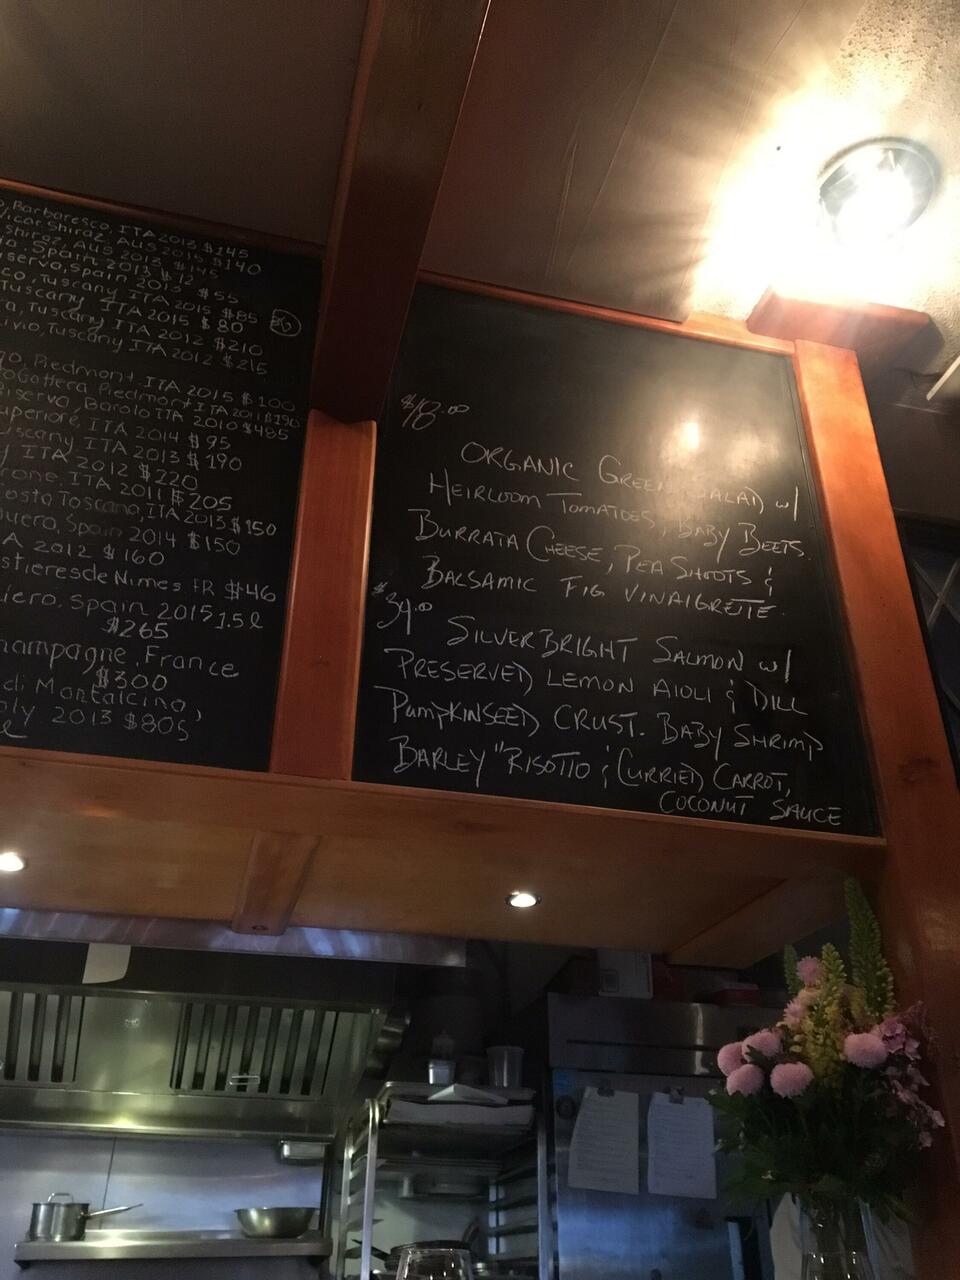 Barbaresco, ITA 2013 $145
Shiraz, AUS 2015 $140
Shiraz, AUS 2013 $145
Spain 2013 $72
serva, Spain, 2013 $55
co, Tuscany ITA 2015 $85
Tuscany ITA 2015 $80
a, Tuscany ITA 2012 $210
vio, Tuscany ITA 2012 $215
go, Piedmont ITA 2015 $100
Gattera Piedmont ITA 2011 $190
serva, Barolo ITA 2010 $485
uperiore, ITA 2014 $95
uscany ITA 2013 $190
ITA 2012 $220
one, ITA 2011 $205
osta Toscana, ITA 2013 $150
uero, Spain 2014 $150
A 2012 $160
stieres de Nimes FR $46
iero, Spain 2015 1.5l
$265
hampagne, France
$300
di Montalcino,
aly 2013 $805
$18.00
ORGANIC GREEN SALAD w/
HEIRLOOM TOMATOES, BABY BEETS.
BURRATA CHEESE, PEA SHOOTS &
BALSAMIC FIG VINAIGRETTE.
$34.00
SILVERBRIGHT SALMON w/
PRESERVED LEMON AIOLI & DILL
PUMPKINSEED CRUST. BABY SHRIMP
BARLEY "RISOTTO & CURRIED CARROT,
COCONUT SAUCE